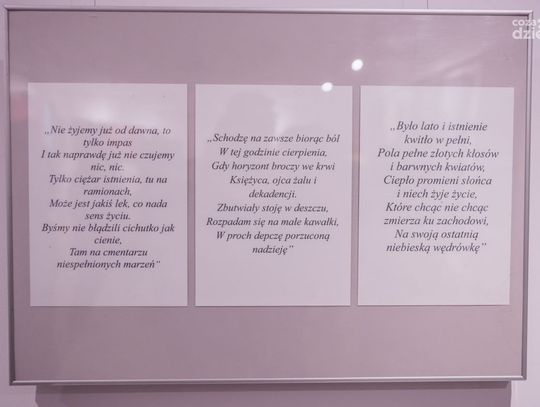 „Nie żyjemy już od dawna, to
tylko impas
I tak naprawdę już nie czujemy
nic, nic.
Tylko ciężar istnienia, tu na
ramionach,
Może jest jakiś lek, co nada
sens życiu.
Byśmy nie błądzili cichutko jak
cienie,
Tam na cmentarzu
niespełnionych marzeń”
„Schodzę na zawsze biorąc ból
W tej godzinie cierpienia,
Gdy horyzont broczy we krwi
Księżyca, ojca żalu i
dekadencji.
Zbutwiały stoję w deszczu,
Rozpadam się na małe kawałki,
W proch depczę porzuconą
nadzieję”
„Było lato i istnienie
kwitło w pełni,
Pola pełne złotych kłosów
i barwnych kwiatów,
Ciepło promieni słońca
i niech żyje życie,
Które chcąc nie chcąc
zmierza ku zachodowi,
Na swoją ostatnią
niebieską wędrówkę”